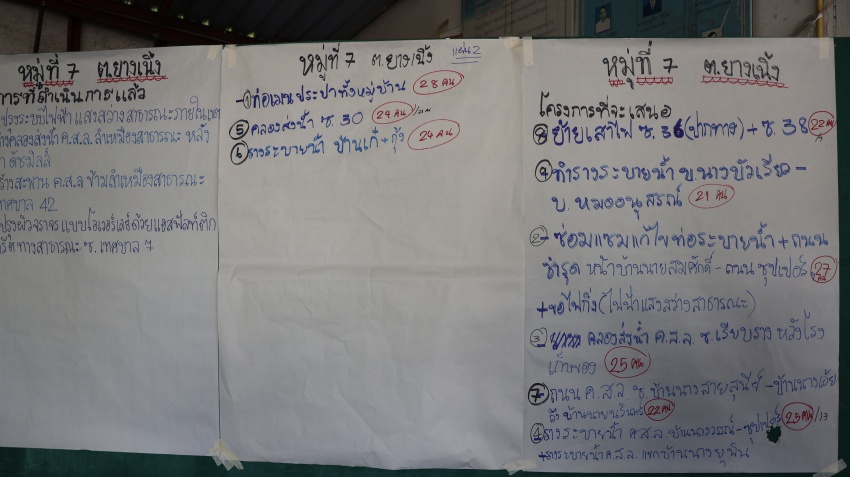 หมู่ที่ 7 ต.ยางเนิ้ง
การที่ดำเนินการแล้ว
ปรุงระบบไฟฟ้า แสงสว่างสาธารณะภายในเขต
คลองส่งน้ำ ค.ส.ล. ลำเหมืองสาธารณะ หลัง
สะพาน ค.ส.ล ข้ามลำเหมืองสาธารณะ
เทศบาล 42
ปรุงผิวจราจร แบบโอเวอร์เลย์ด้วยแอสฟัลท์ติก
ทางสาธารณะ ซ. เทศบาล 7
หมู่ที่ 7 ต.ยางเนิ้ง แผ่น 2
① ท่อเมน ประปาทั้งหมู่บ้าน 28 คน
⑤ คลองส่งน้ำ ซ. 30 24 คน
⑥ รางระบายน้ำ บ้านเก๋ + กุ้ง 24 คน
หมู่ที่ 7 ต.ยางเนิ้ง
โครงการที่จะเสนอ
ย้ายเสาไฟ ซ. 36 (ปากทาง) + ซ. 38 22 คน
ทำรางระบายน้ำ บ.นางบัวเรียว -
บ. หมออนุสรณ์ 21 คน
② - ซ่อมแซมแก้ไขท่อระบายน้ำ + ถนน
ชำรุด หน้าบ้านนายสมศักดิ์ - ถนน ซุปเปอร์ 27 คน
+ ขอไฟกิ่ง (ไฟฟ้าแสงสว่างสาธารณะ)
③ คลองส่งน้ำ ค.ส.ล. ซ. เรียบราง หลังโรง
25 คน
⑦ ถนน ค.ส.ล ซ. บ้านนางสายสุนีย์ - บ้านนาง
ถึง บ้านนาย 22 คน
④ รางระบายน้ำ ค.ส.ล บ้านนาง - ซุปเปอร์ 25 คน /17
+ รางระบายน้ำ ค.ส.ล. แยกบ้านนางยุพิน